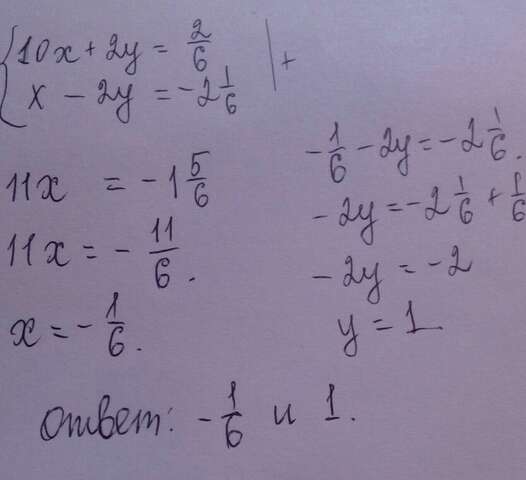 10x + 2y = 2/6 | +
x - 2y = -2 1/6
11x = -1 5/6
11x = - 11/6.
x = - 1/6.
- 1/6 - 2y = -2 1/6.
- 2y = -2 1/6 + 1/6
- 2y = -2
y = 1
ответ: - 1/6 и 1.